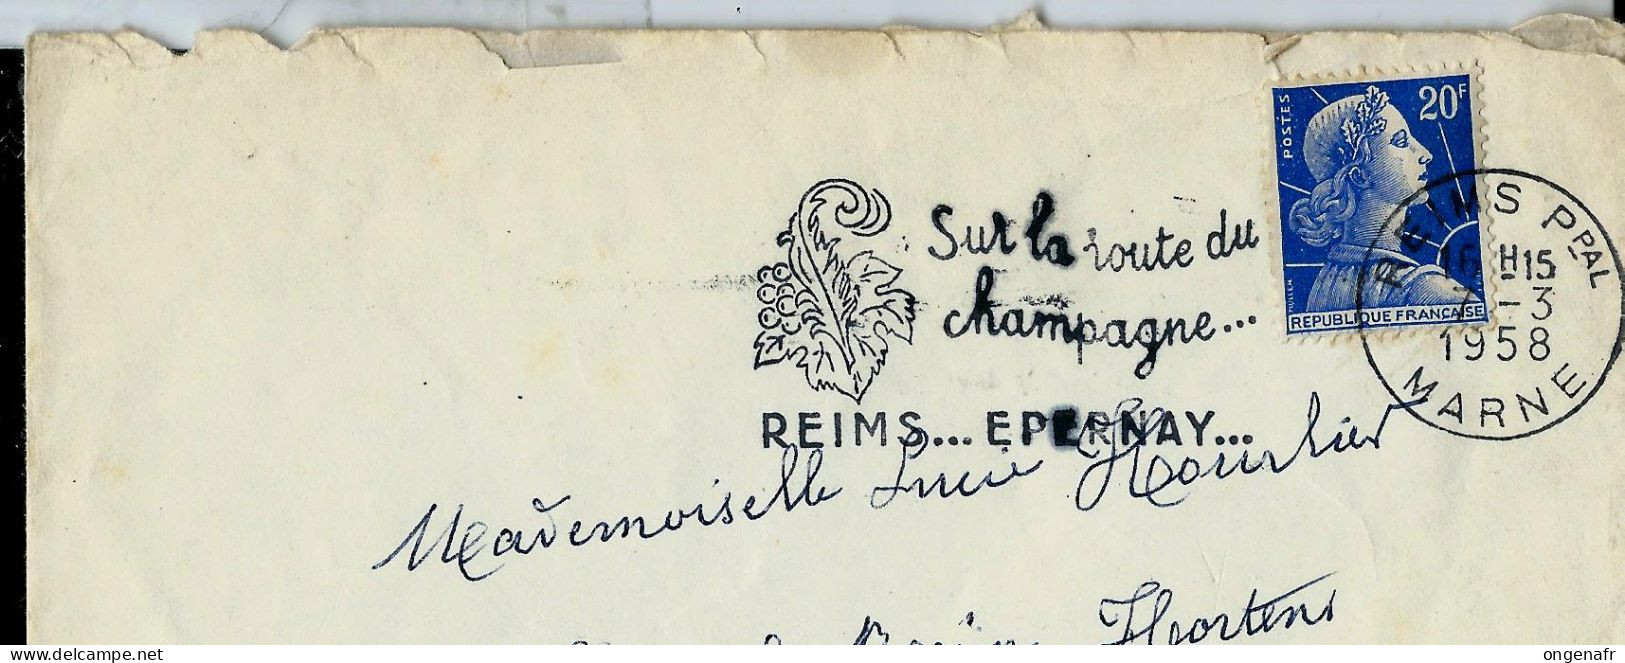 POSTES
20F
MULLER
REPUBLIQUE FRANÇAISE
REIMS PPAL
16H15
7-3
1958
MARNE
Sur la route du
champagne...
REIMS... EPERNAY...
Mademoiselle Lucie Hourlier
Hortens
delcampe.net
ongenafr